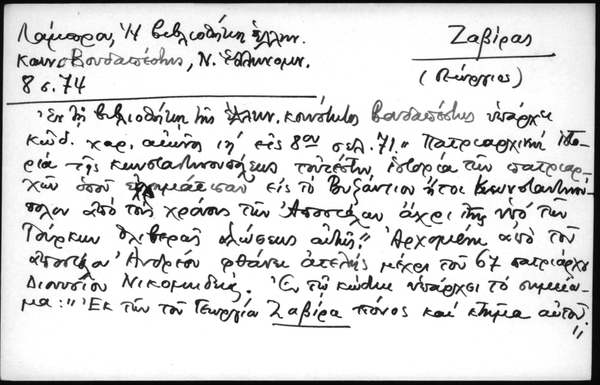 Λάμπρου, Ἡ βιβλιοθήκη ἑλλην.
κοινο Βουδαπέστης, Ν. Ἑλληνομν.
8 σ. 74
Ζαβίρας
(Γεώργιος)
Ἐν τῇ βιβλιοθήκῃ τῆς ἑλλην. κοινότητος Βουδαπέστης ὑπάρχει
κῶδ. χαρ. αἰῶνος ιη' εἰς 8ον σελ. 71. "Πατριαρχική ἱστο-
ρία τῆς Κωνσταντινουπόλεως τουτέστιν, ἱστορία τῶν πατριαρ-
χῶν ὁποῦ ἐχρημάτισαν εἰς τὸ Βυζάντιον ἤτοι Κωνσταντινού-
πολιν ἀπὸ τοὺς χρόνους τῶν Ἀποστόλων ἄχρι τῆς ὑπὸ τῶν
Τούρκων θλιβερᾶς ἁλώσεως αὐτῆς". Ἀρχομένη ἀπὸ τοῦ
ἀποστόλου Ἀνδρέου φθάνει ἀτελής μέχρι τοῦ 67 πατριάρχου
Διονυσίου Νικομηδείας. Ἐν τῷ κώδικι ὑπάρχει τὸ σημείω-
μα: "Ἐκ τῶν τοῦ Γεωργίου Ζαβίρα πόνος καὶ κτῆμα αὐτοῦ"